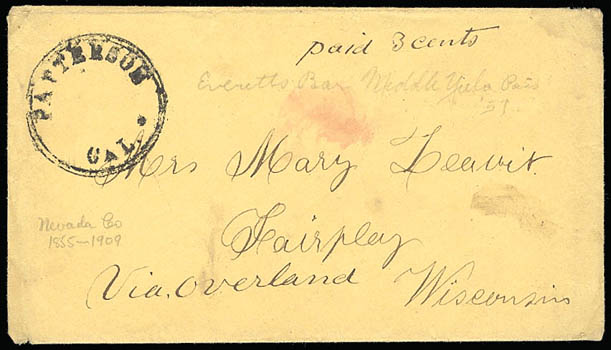 paid 3 cents
PATTERSON
CAL.
Everetts Bar Middle Yuba
Mrs Mary Leavit
Nevada Co
1855-1909
Fairplay
Via. Overland Wisconsin